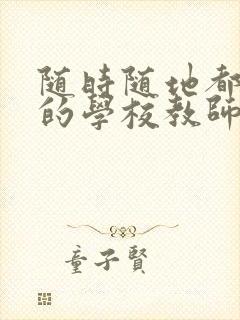 随時随地都
的學校教師
童子賢